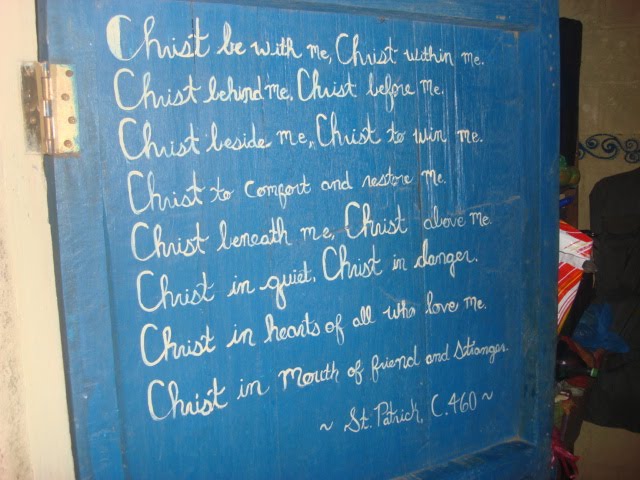 Christ be with me, Christ within me.
Christ behind me, Christ before me,
Christ beside me, Christ to win me.
Christ to comfort and restore me.
Christ beneath me, Christ above me.
Christ in quiet, Christ in danger.
Christ in hearts of all who love me.
Christ in mouth of friend and stranger.
~ St. Patrick, C. 460 ~